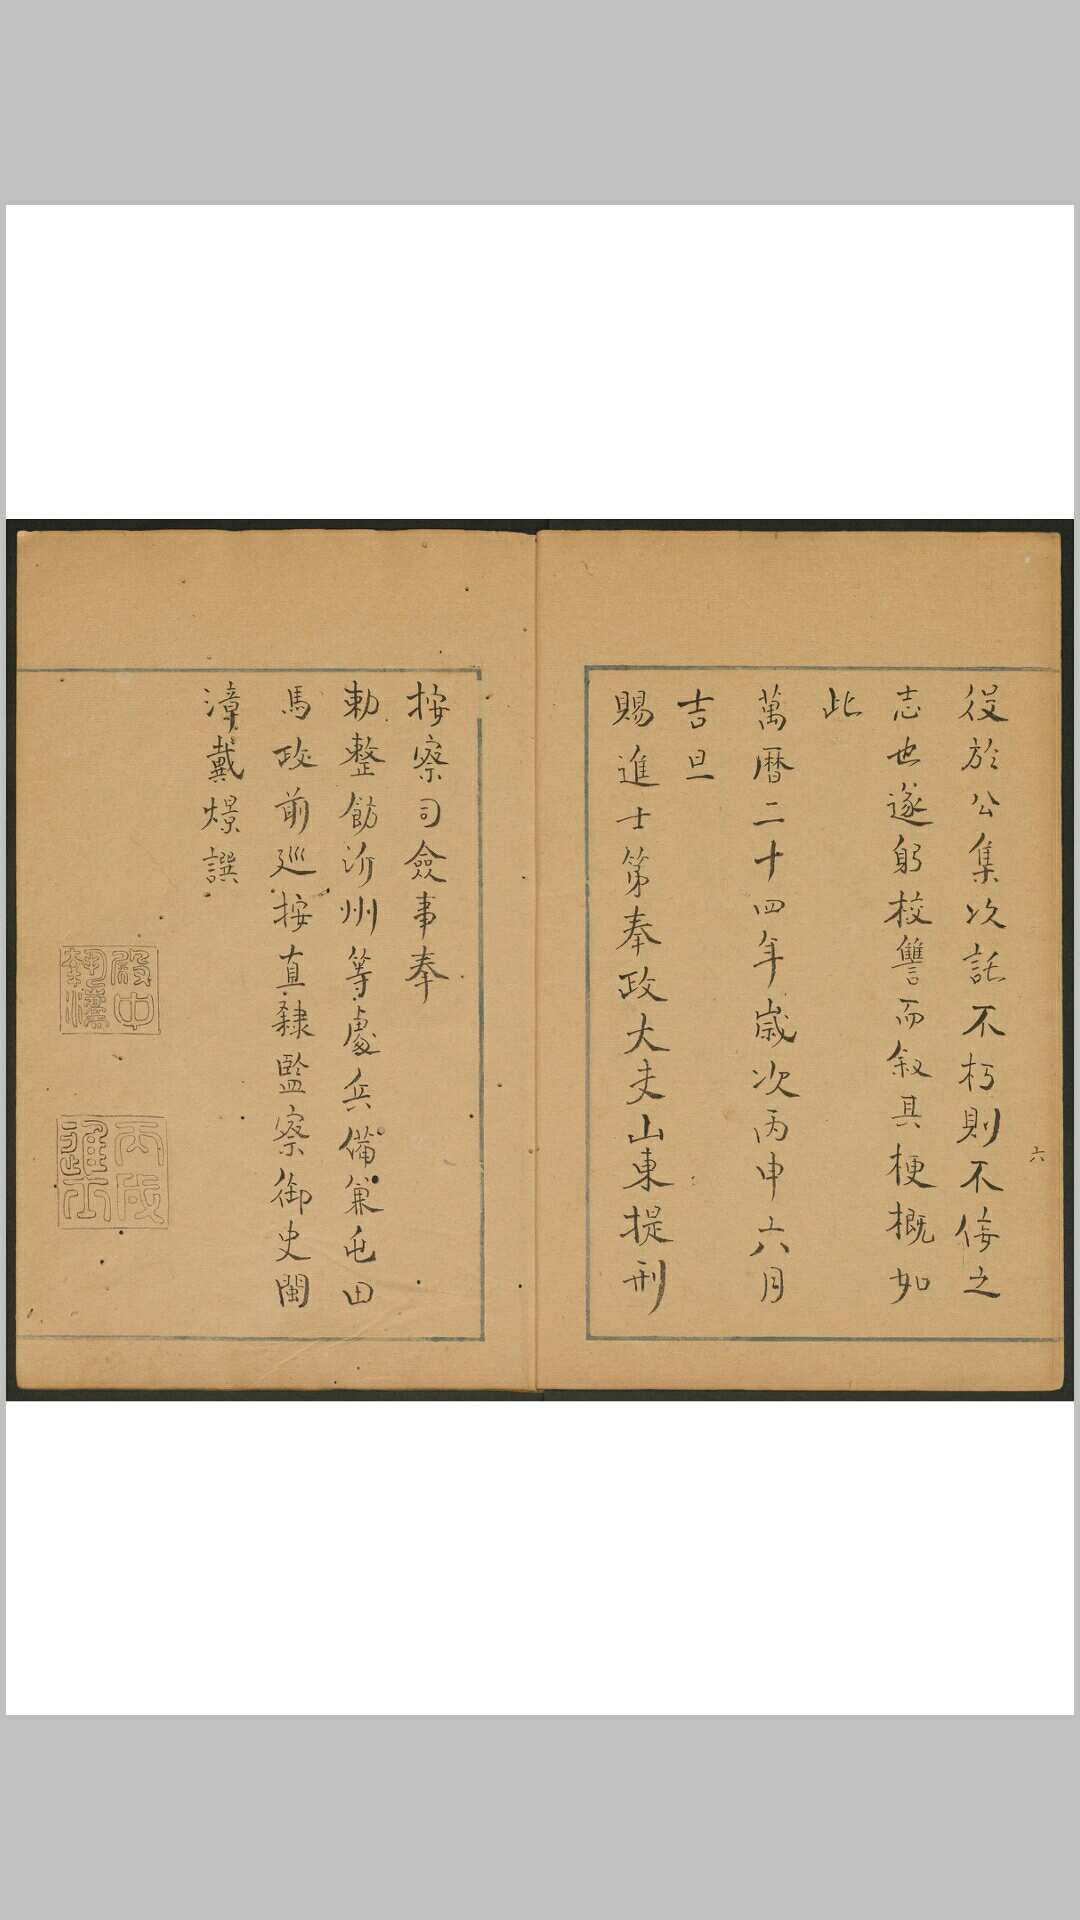 役於公集次託不朽則不侫之
志也遂躬校讐而叙其梗概如
此
萬曆二十四年歲次丙申六月
吉旦
賜進士第奉政大夫山東提刑
六
按察司僉事奉
勅整飭沂州等處兵備兼屯田
馬政前巡按直隸監察御史閩
漳戴燝譔
殿中執灋
丙戌進士